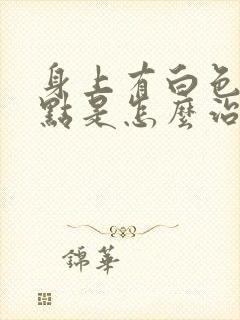 身上有白色
點是怎麼治
錦華